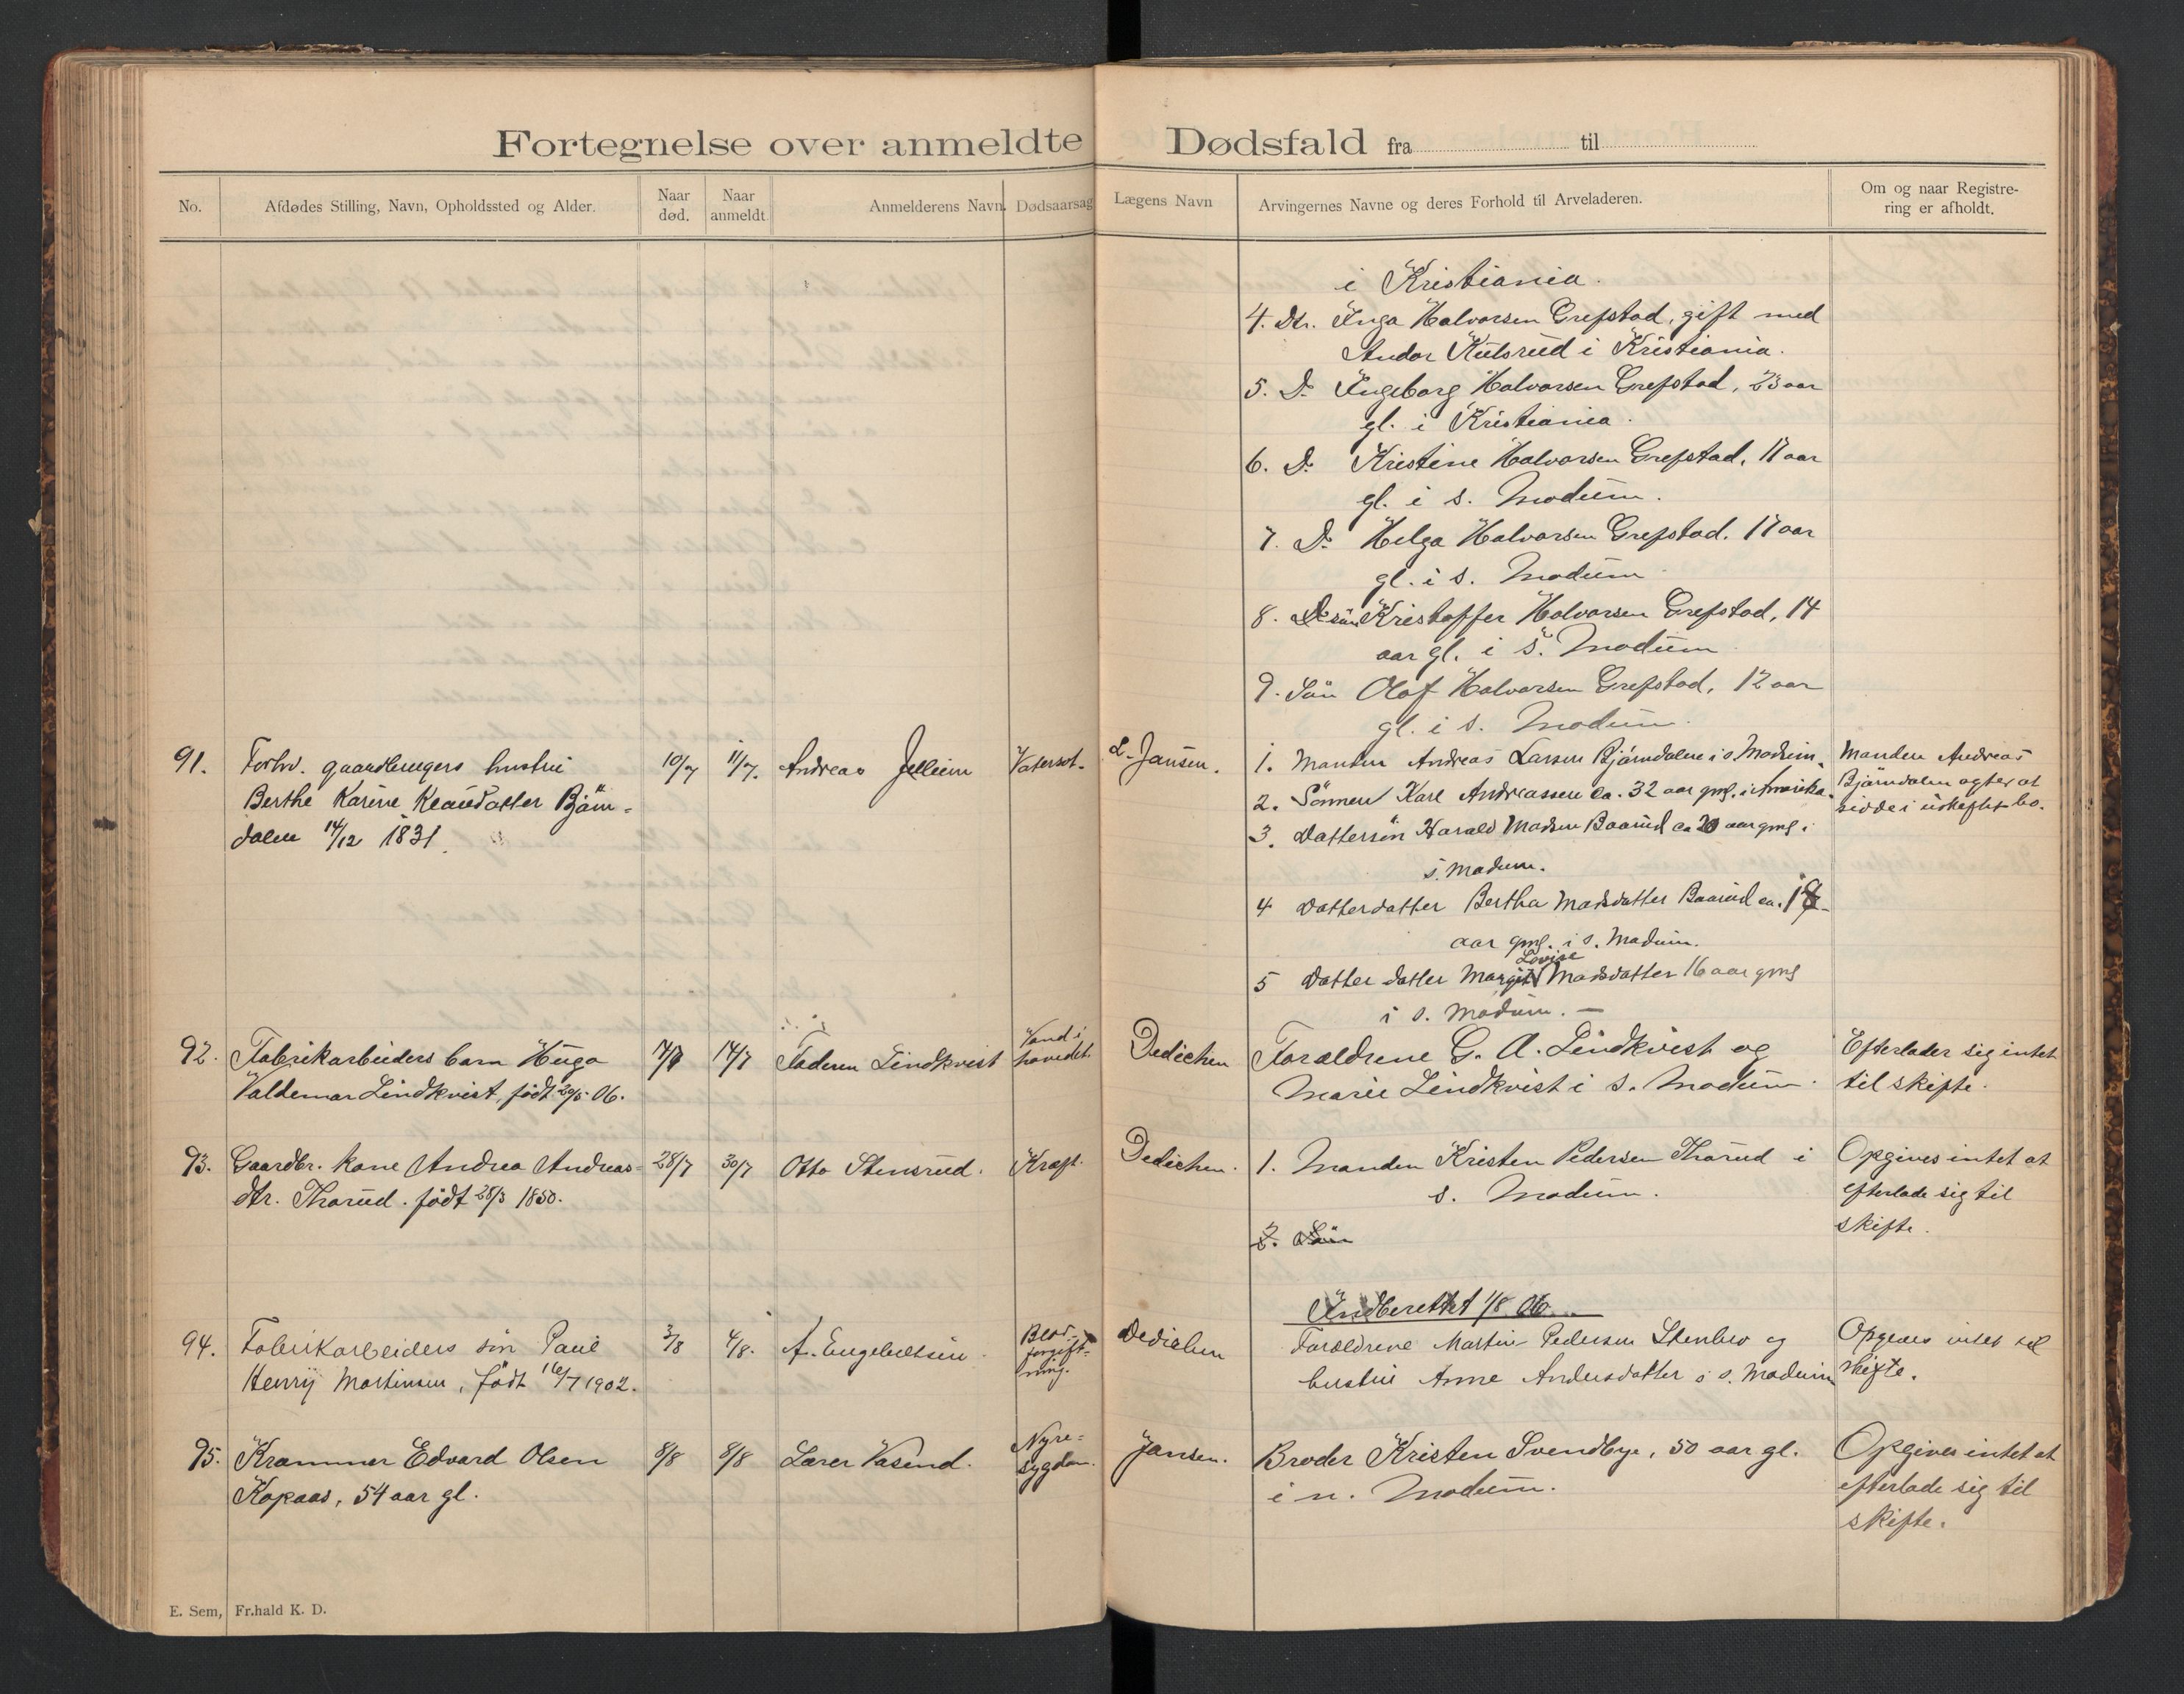 Fortegnelse over anmeldte Dødsfald fra til
No. Afdødes Stilling, Navn, Opholdssted og Alder. Naar død. Naar anmeldt. Anmelderens Navn. Dødsaarsag Lægens Navn Arvingernes Navne og deres Forhold til Arveladeren. Om og naar Registrering er afholdt.
i Kristiania.
4. Dtr. Inga Halvorsen Grefstad, gift med
Andor Kulsrud i Kristiania.
5. Do Ingeborg Halvorsen Grefstad, 23 aar
gl. i Kristiania.
6. Do Kristine Halvorsen Grefstad, 17 aar
gl. i s. Modum.
7. Do Helga Halvorsen Grefstad. 17 aar
gl. i s. Modum
8. Søn Kristoffer Halvorsen Grefstad, 14
aar gl. i s. Modum
9. Søn Olaf Halvorsen Grefstad, 12 aar
gl. i s. Modum.
91. Forhv. gaardbrugers hustru
Berthe Karine Klausdatter Bjørn-
dalen 14/12 1831.
10/7 11/7. Andreas Jelleim Vatersot. L. Jansen.
1. Manden Andreas Larsen Bjørndalen i s. Modum.
2. Sønnen Karl Andreassen ca. 32 aar gml. i Amerika.
3. Dattersøn Harald Madsen Baarud ca 20 aar gml i
s. Modum.
4 Datterdatter Bertha Madsdatter Baarud ca. 18
aar gml. i s. Modum.
Lovise
5 Datter datter Margit Madsdatter 16 aar gml
i s. Modum. —
Manden Andreas
Bjørndalen agter at
sidde i uskiftet bo.
92. Fabrikarbeiders barn Hugo
Valdemar Lindkvist, født 20/5 06.
14/7 Faderen Lindkvist
Vand i
hovedet.
Dedichen
Forældrene G. A. Lindkvist og
Marie Lindkvist i s. Modum.
Efterlader sig intet
til skifte.
93. Gaardbr. kone Andrea Andreas-
dtr. Thorud. født 28/3 1850.
28/7 30/7 Otto Stensrud. Kræft. Dedichen.
1. Manden Kristen Pedersen Thorud i
s. Modum.
2. Søn
Opgives intet at
efterlade sig til
skifte.
Indberettet 1/8 06
94. Fabrikarbeiders søn Paul
Henry Martinsen, født 16/7 1902.
3/8 4/8. A. Engebretsen.
Blod-
forgift-
ning.
Dedichen
Forældrene Martin Pedersen Stenbro og
hustru Anne Andersdatter i s. Modum
Opgives intet til
skifte.
95. Kræmmer Edvard Olsen
Kopaas, 54 aar gl.
8/8 8/8 Lærer Vasend.
Nyre-
sygdom.
Jansen.
Broder Kristen Svendbye, 50 aar gl.
i n. Modum.
Opgives intet at
efterlade sig til
skifte.
E. Sem, Fr.hald K. D.